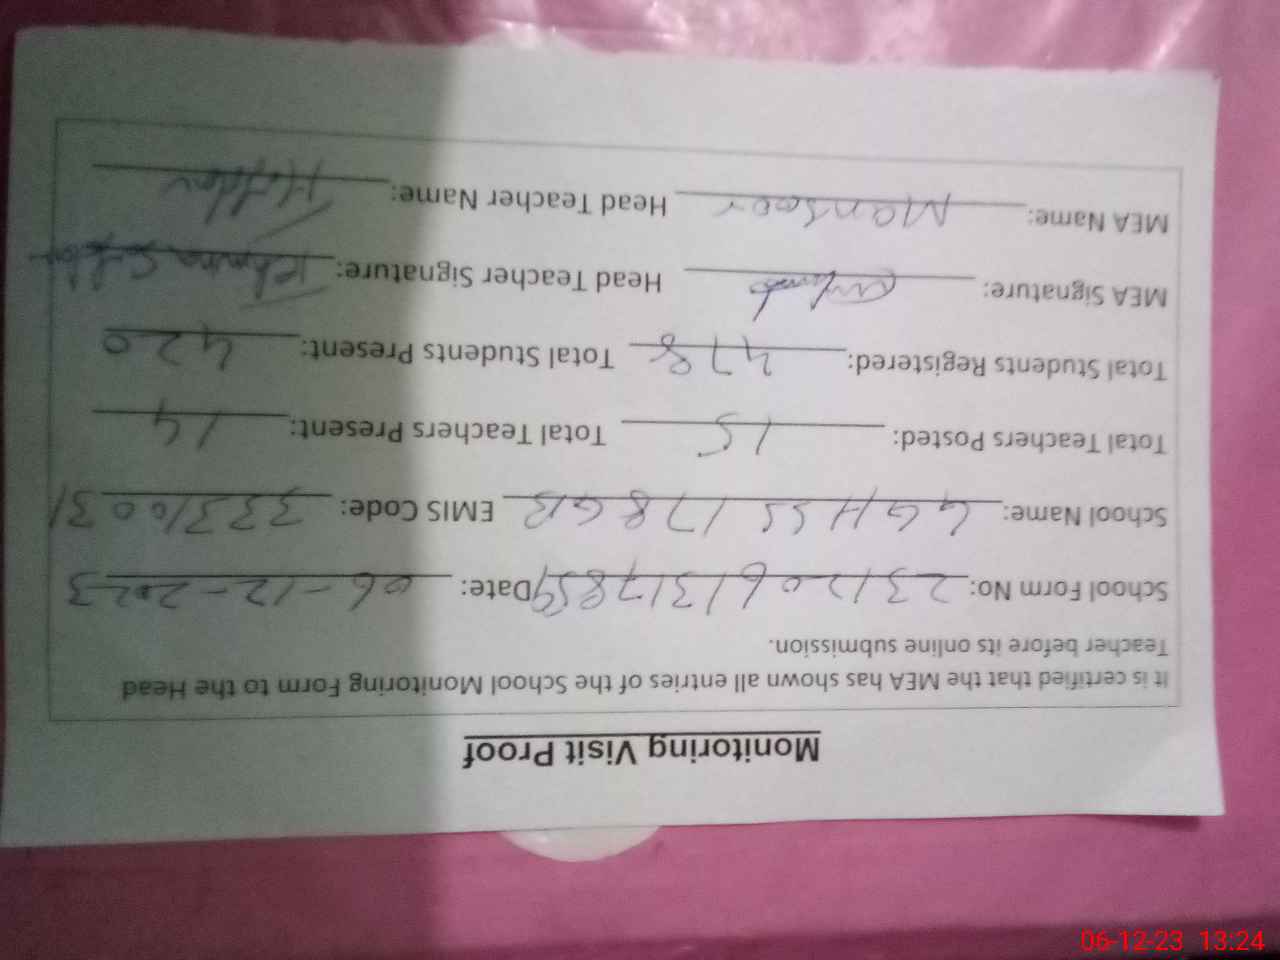 Monitoring Visit Proof
It is certified that the MEA has shown all entries of the School Monitoring Form to the Head
Teacher before its online submission.
School Form No: 2312061317859 Date: 06-12-2023
School Name: GGHSS 178 GB EMIS Code: 33310031
Total Teachers Posted: 15 Total Teachers Present: 14
Total Students Registered: 478 Total Students Present: 420
MEA Signature: Head Teacher Signature:
MEA Name: Mansoor Head Teacher Name:
06-12-23 13:24